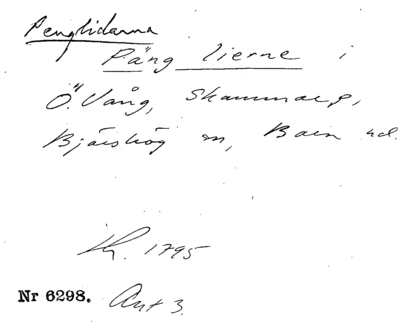 Penglidarna
Päng lierne i
Ö. Vång, Skammarp,
Bjärshög sn, Bara hd.
Kh. 1795
Nr 6298. Ant 3.